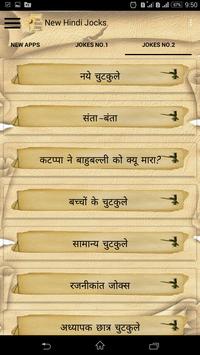 9:50
New Hindi Jocks
NEW APPS JOKES NO.1 JOKES NO.2
नये चुटकुले
संता-बंता
कटप्पा ने बाहुबल्ली को क्यू मारा?
बच्चों के चुटकुले
सामान्य चुटकुले
रजनीकांत जोक्स
अध्यापक छात्र चुटकुले